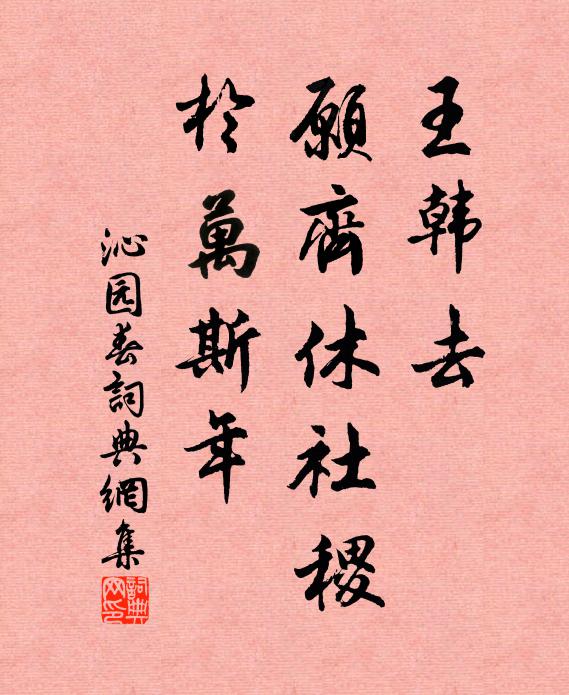 王韩去
願齊休社稷
於萬斯年
沁园春詞典網集
詞典
网印